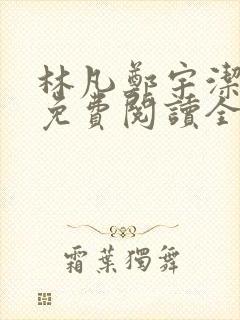 林凡鄭宇潔
免費閱讀全
霜葉獨舞